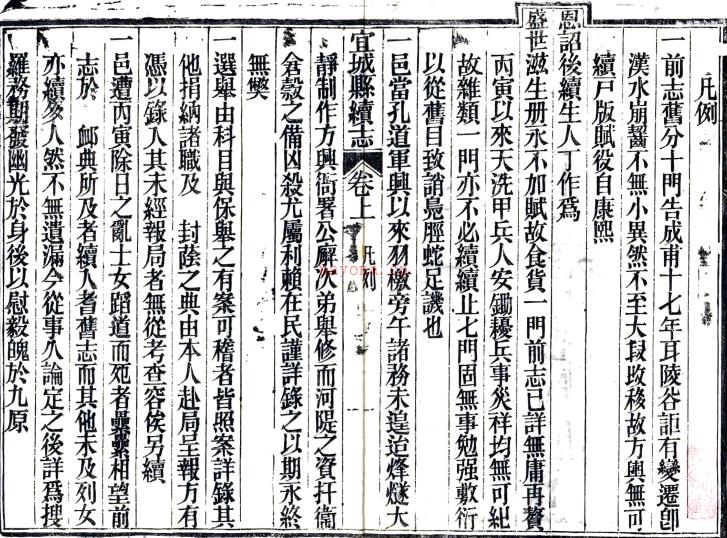 凡例
一前志舊分十門告成甫十七年耳陵谷詎有變遷卽
漢水崩齧不無小異然不至大段改移故方輿無可
續戸版賦役自康熙
恩詔後續生人丁作爲
盛世滋生册永不加賦故食貨一門前志已詳無庸再贅
丙寅以來天洗甲兵人安鋤耰兵事災祥均無可紀
故雜類一門亦不必續續止七門固無事勉强敷衍
以從舊目致誚鳧脛蛇足譏也
一邑當孔道軍興以來羽檄旁午諸務未遑迨烽燧大
宜城縣續志 卷上 凡例
靜制作方興衙署公廨次弟舉修而河隄之資扞衞
倉穀之備凶殺尤屬利賴在民謹詳錄之以期永終
無獘
一選舉由科目與保舉之有案可稽者皆照案詳錄其
他捐納諸職及 封蔭之典由本人赴局呈報方有
憑以錄入其未經報局者無從考查容俟另續
一邑遭丙寅除日之亂士女蹈道而死者纍纍相望前
志於 䘏典所及者續入耆舊志而其他未及列女
亦續多人然不無遺漏今從事久論定之後詳爲搜
羅務期發幽光於身後以慰毅魄於九原